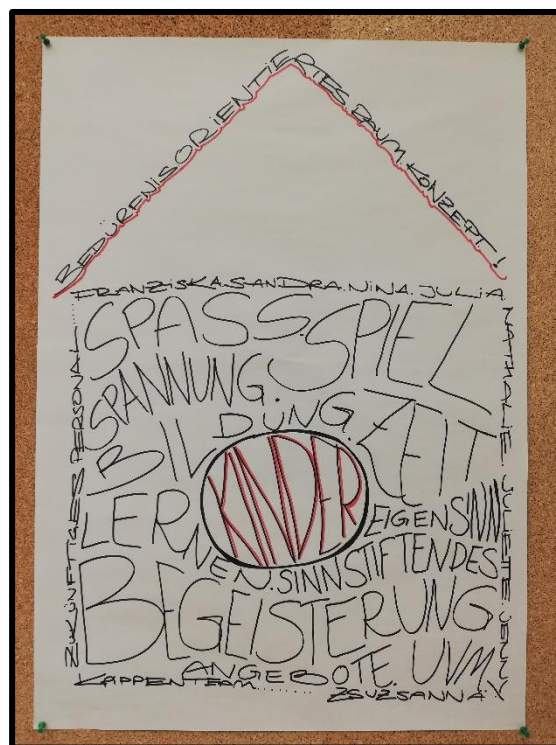 BEDÜRFNISORIENTIERTES.RAUM.KONZEPT!
FRANZISKA.SANDRA.NINA.JULIA
NATHALIE.
ZUKÜNFTIGES PERSONAL......
SPASS.SPIEL
SPANNUNG.ZEIT
BILDUNG.
KINDER
LERNEN.EIGENSINN
SINNSTIFTENDES
BEGEISTERUNG.
ANGEBOTE. UVM.
KRIPPENTEAM........
ZSUZSANNA